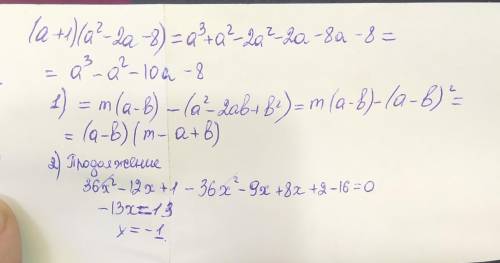 (a+1)(a²-2a-8)=a³+a²-2a²-2a-8a-8=
= a³-a²-10a-8
1) = m(a-b)-(a²-2ab+b²)=m(a-b)-(a-b)²=
= (a-b)(m-a+b)
2) Продолжение
36x²-12x+1-36x²-9x+8x+2-16=0
-13x=13
x=-1